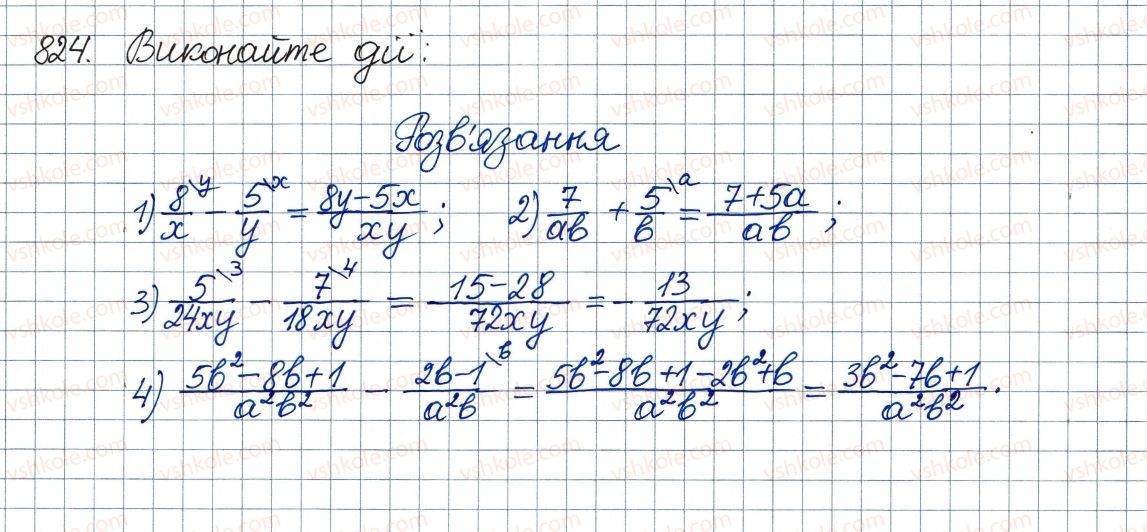 824. Виконайте дії:
Розв'язання
1) 8\y/x − 5\x/y = (8y−5x)/(xy); 2) 7/(ab) + 5\a/b = (7+5a)/(ab);
3) 5\3/(24xy) − 7\4/(18xy) = (15−28)/(72xy) = −13/(72xy);
4) (5b²−8b+1)/(a²b²) − (2b−1)\b/(a²b) = (5b²−8b+1−2b²+b)/(a²b²) = (3b²−7b+1)/(a²b²).
vshkole.com